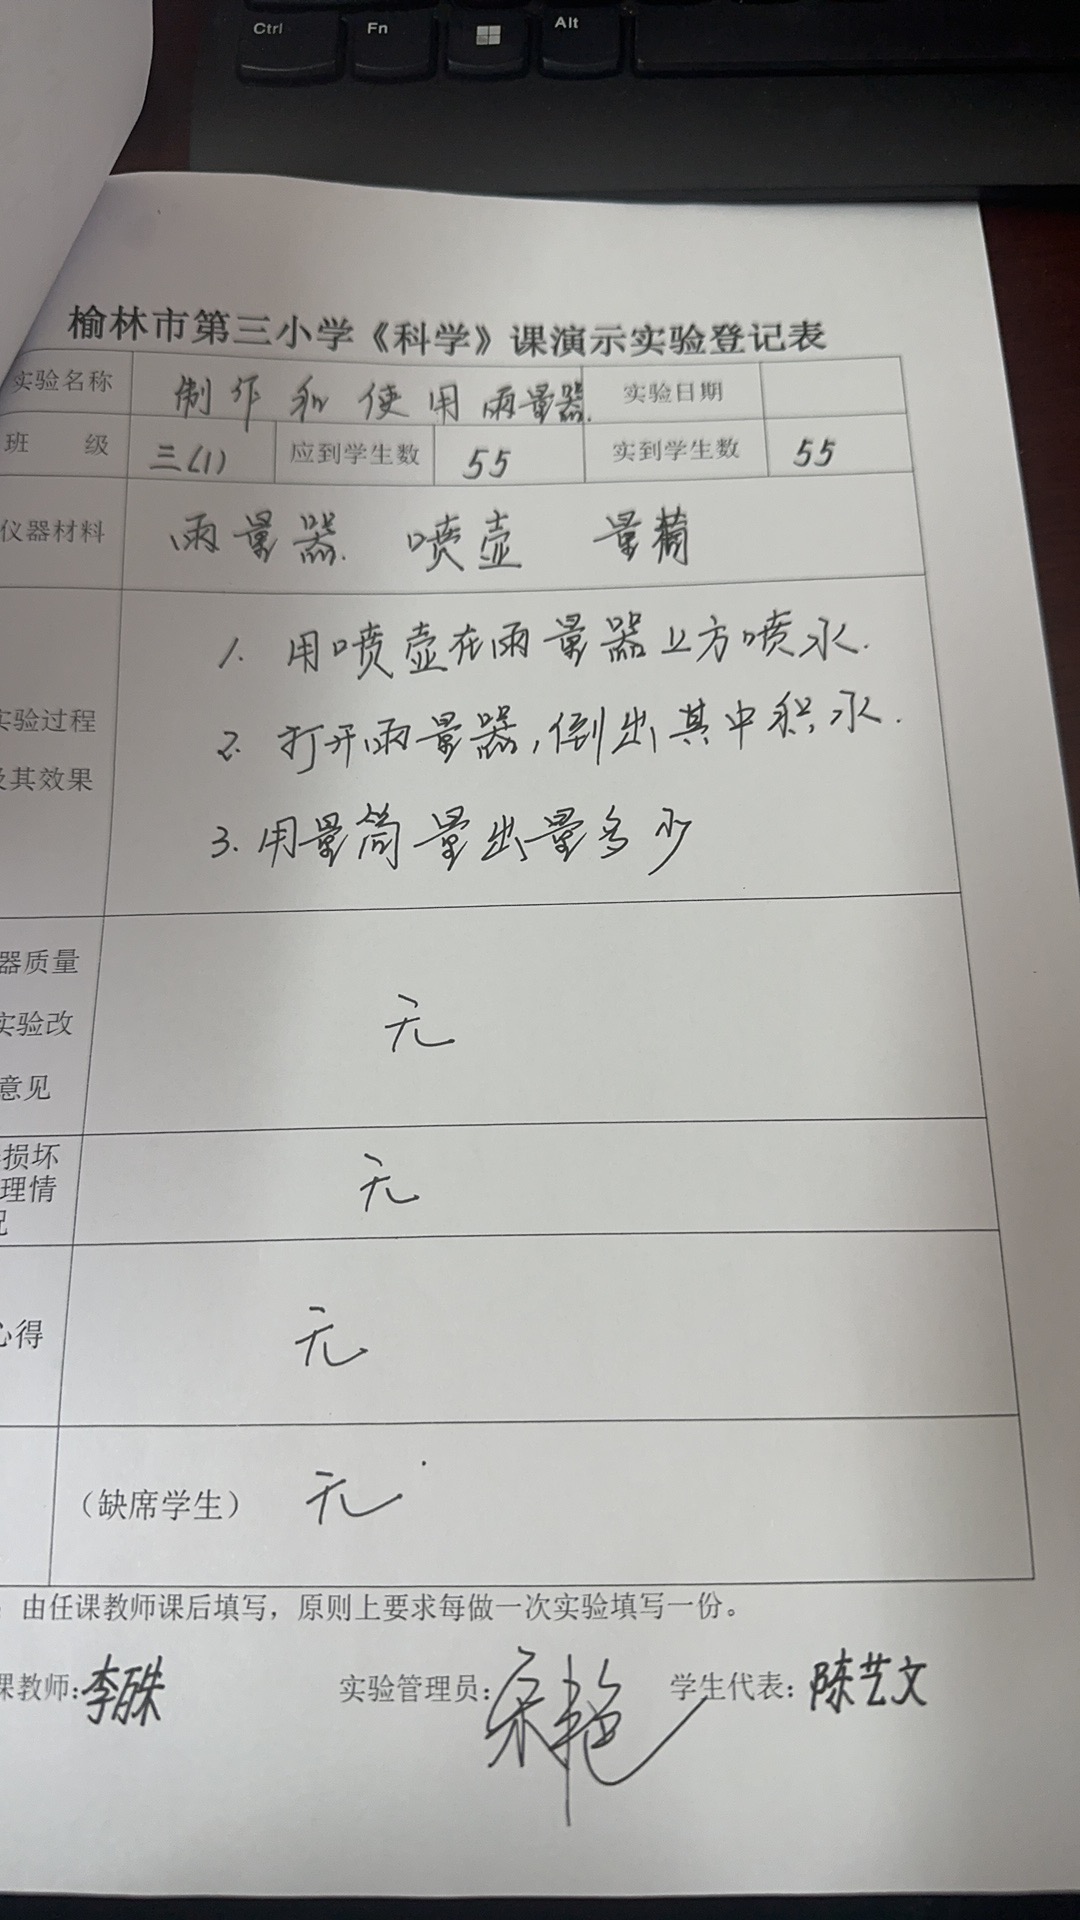 Ctrl Fn Alt
榆林市第三小学《科学》课演示实验登记表
实验名称 制作和使用雨量器. 实验日期
班 级 三(1) 应到学生数 55 实到学生数 55
仪器材料 雨量器. 喷壶 量
1. 用喷壶在雨量器上方喷水.
实验过程
2. 打开雨量器,倒出其中积水.
及其效果
3. 用量筒量出量多少
器质量
实验改 无
意见
损坏
理情 无
况
心得 无
(缺席学生) 无
由任课教师课后填写，原则上要求每做一次实验填写一份。
课教师: 李 实验管理员: 学生代表: 陈艺文